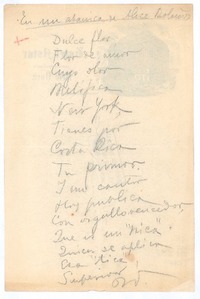 En un abanico de Alice
Dulce flor
Flor de amor
Cuyo olor
Melifica
New York,
Tienes por
Costa Rica
Tu primor.
Y mi cantor
Hoy publica
Con orgullo vencedor,
Que es un "Nica"
Quien se aplica
Esa "tica",
Superior